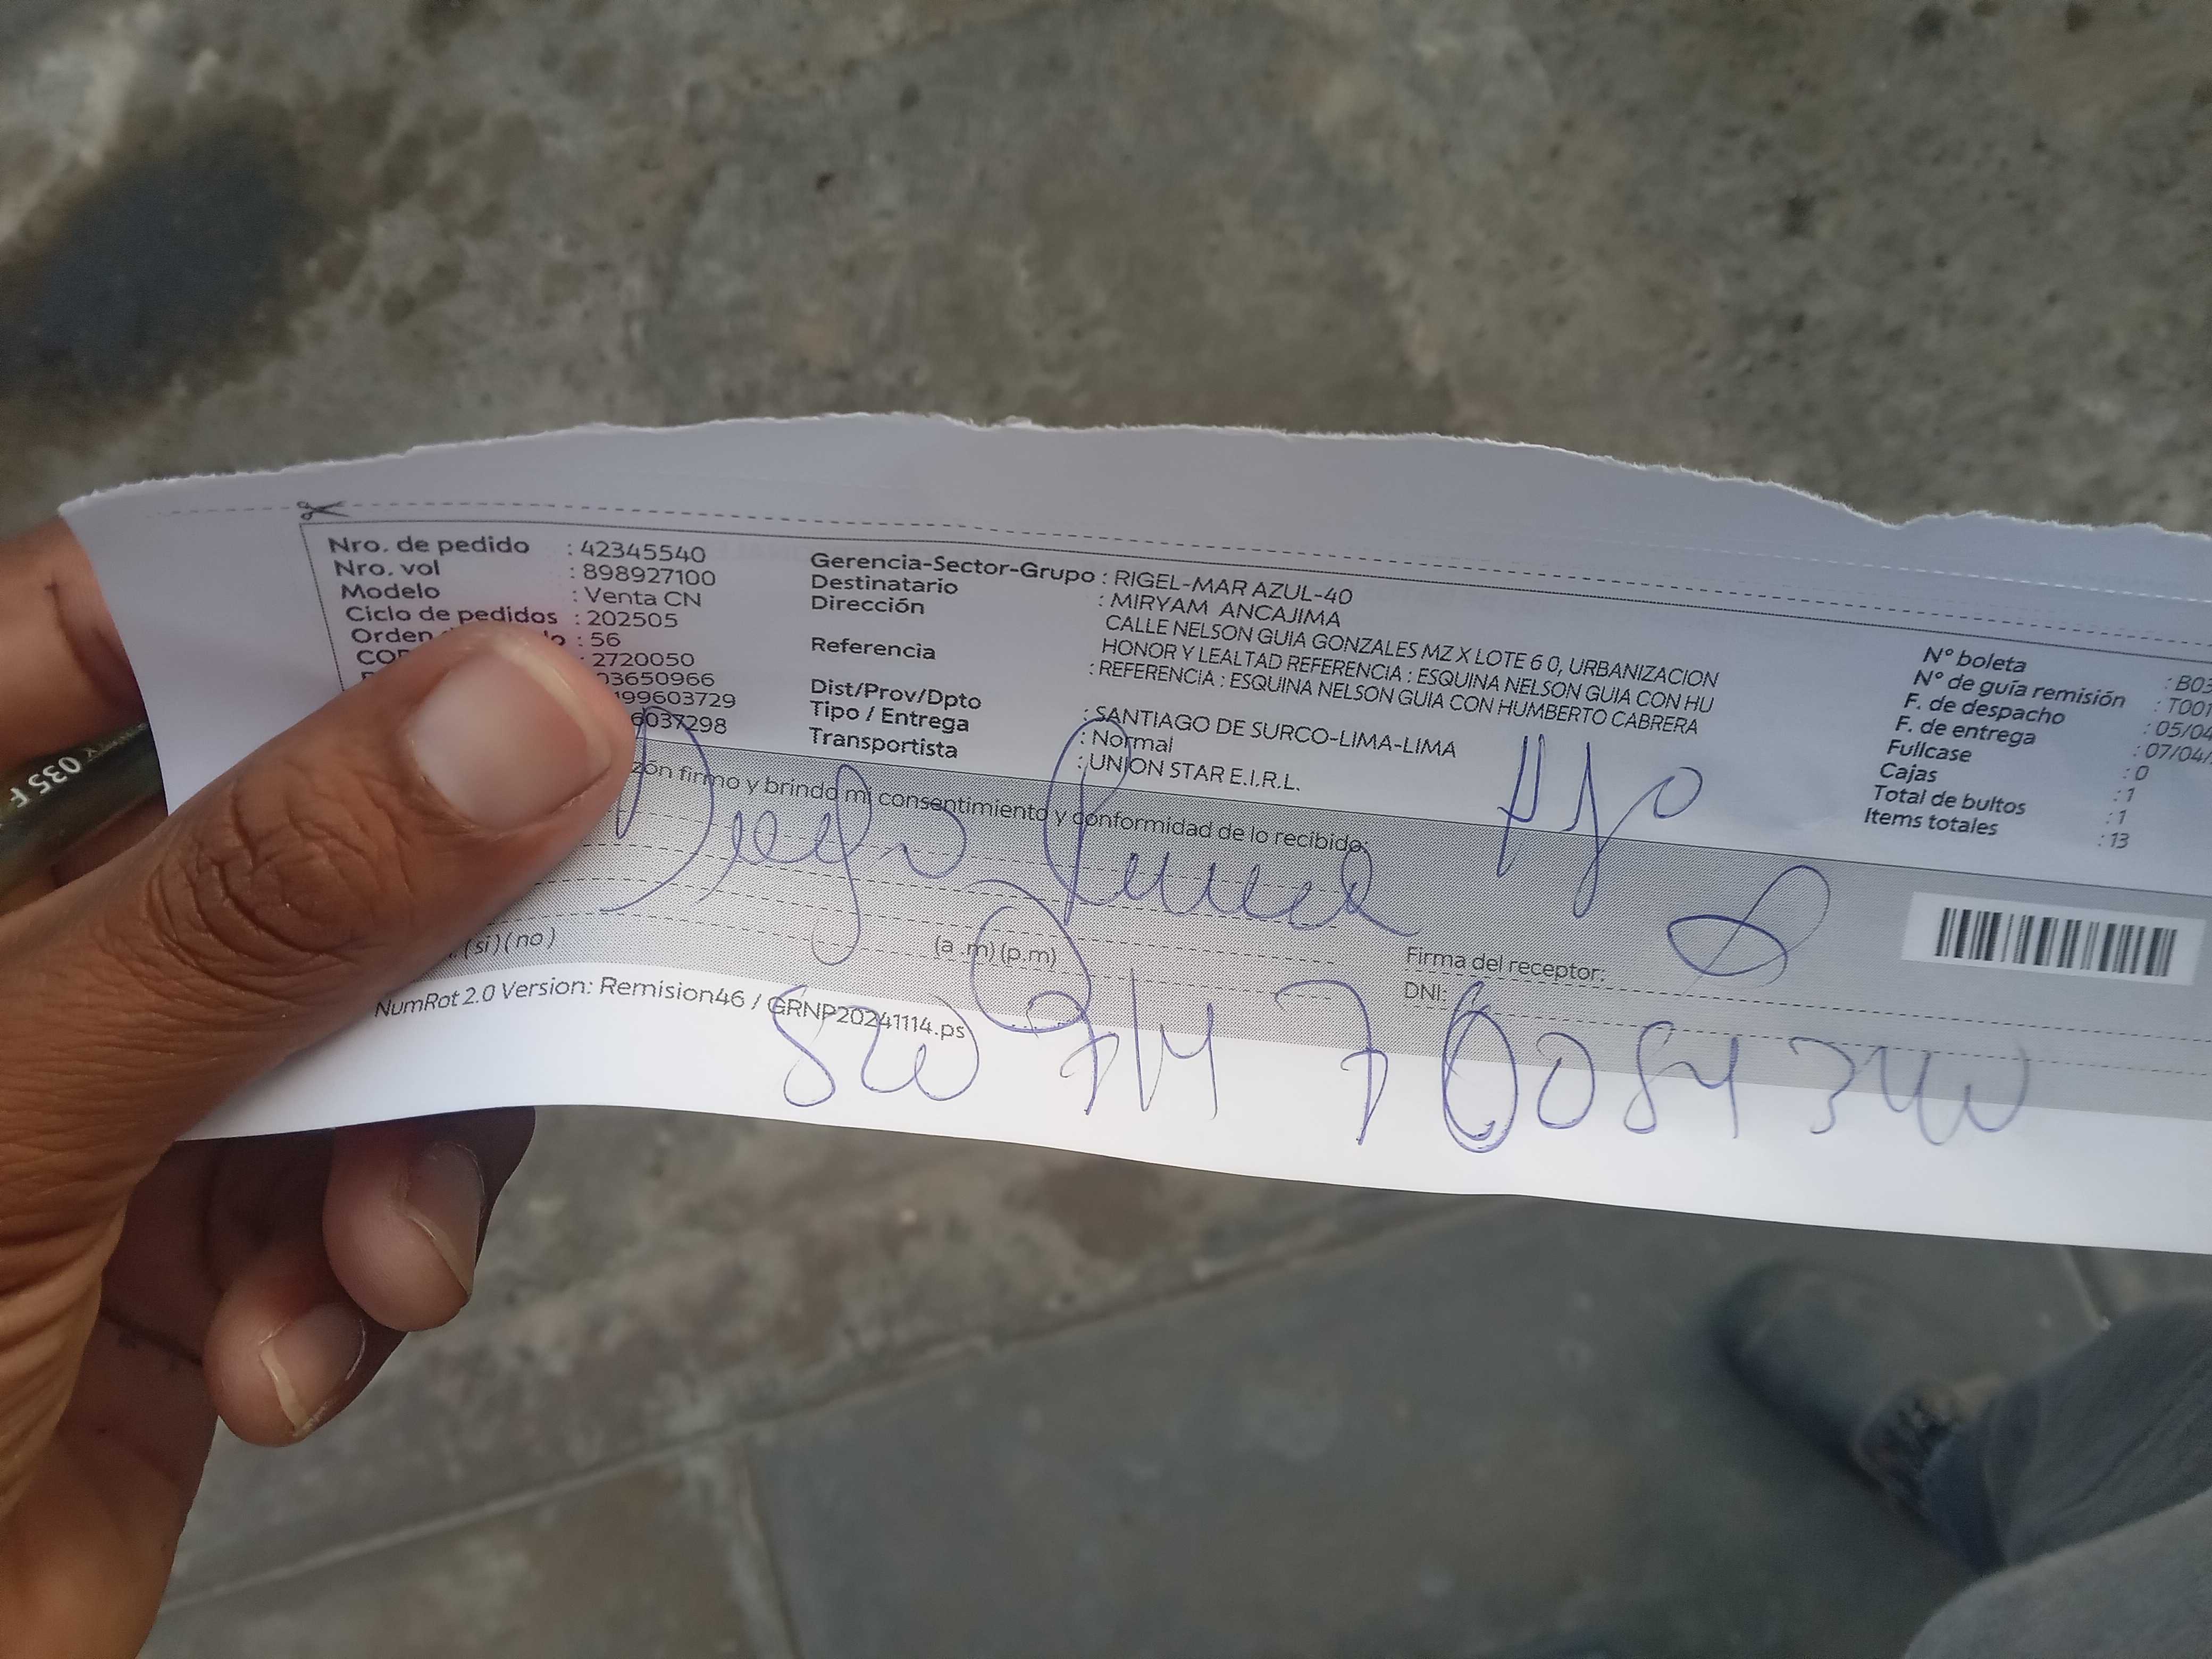 Nro. de pedido : 42345540
Nro. vol : 898927100
Modelo : Venta CN
Ciclo de pedidos : 202505
Orden : 56
: 2720050
03650966
199603729
6037298
Gerencia-Sector-Grupo : RIGEL-MAR AZUL-40
Destinatario : MIRYAM ANCAJIMA
Dirección CALLE NELSON GUIA GONZALES MZ X LOTE 6 0, URBANIZACION
HONOR Y LEALTAD REFERENCIA : ESQUINA NELSON GUIA CON HU
Referencia : REFERENCIA : ESQUINA NELSON GUIA CON HUMBERTO CABRERA
Dist/Prov/Dpto : SANTIAGO DE SURCO-LIMA-LIMA
Tipo / Entrega : Normal
Transportista : UNION STAR E.I.R.L.
N° boleta : B03
N° de guía remisión : T001
F. de despacho : 05/04
F. de entrega : 07/04/
Fullcase : 0
Cajas : 1
Total de bultos : 1
Items totales : 13
zón firmo y brindo mi consentimiento y conformidad de lo recibido:
Diego
(si) (no)
(a .m) (p.m)
Firma del receptor:
DNI:
NumRot 2.0 Version: Remision46 / GRNP20241114.ps
035 F